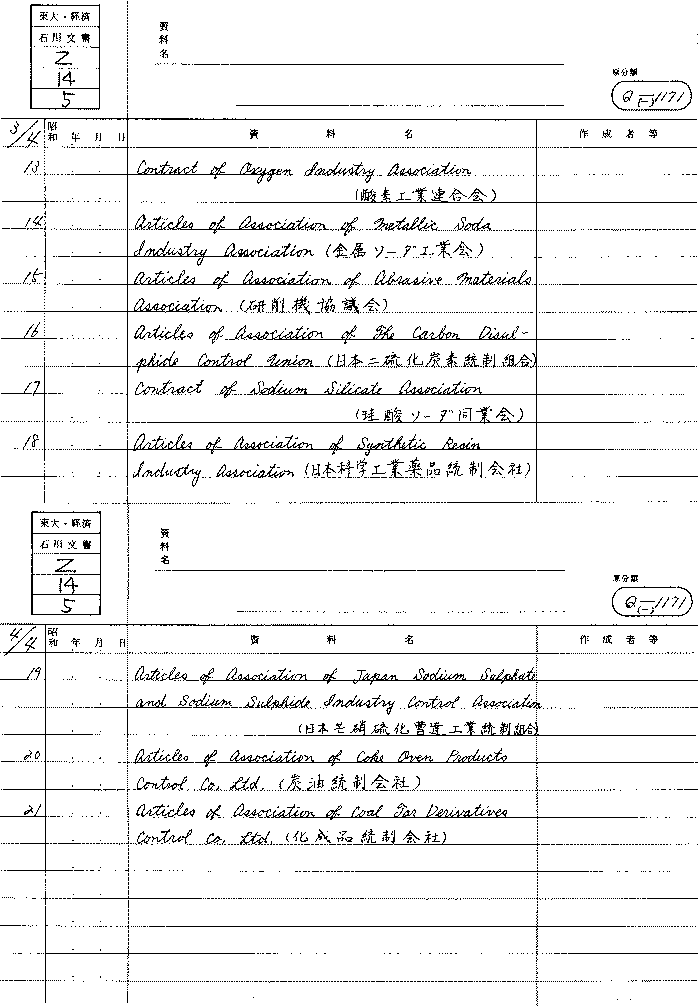 東大・経済
石川文書
Z
14
5
資料名
原分類
Q-(-)1171
3/4 昭和 年 月 日 資料名 作成者等
13 Contract of Oxygen Industry Association
(酸素工業連合会)
14 Articles of Association of Metallic Soda
Industry Association (金属ソーダ工業会)
15 Articles of Association of Abrasive Materials
Association (研削機協議会)
16 Articles of Association of The Carbon Disul-
phide Control Union (日本二硫化炭素統制組合)
17 Contract of Sodium Silicate Association
(珪酸ソーダ同業会)
18 Articles of Association of Synthetic Resin
Industry Association (日本科学工業薬品統制会社)
東大・経済
石川文書
Z
14
5
資料名
原分類
Q-(-)1171
4/4 昭和 年 月 日 資料名 作成者等
19 Articles of Association of Japan Sodium Sulphate
and Sodium Sulphide Industry Control Association
(日本芒硝硫化曹達工業統制組合)
20 Articles of Association of Coke Oven Products
Control Co. Ltd. (炭油統制会社)
21 Articles of Association of Coal Tar Derivatives
Control Co. Ltd. (化成品統制会社)